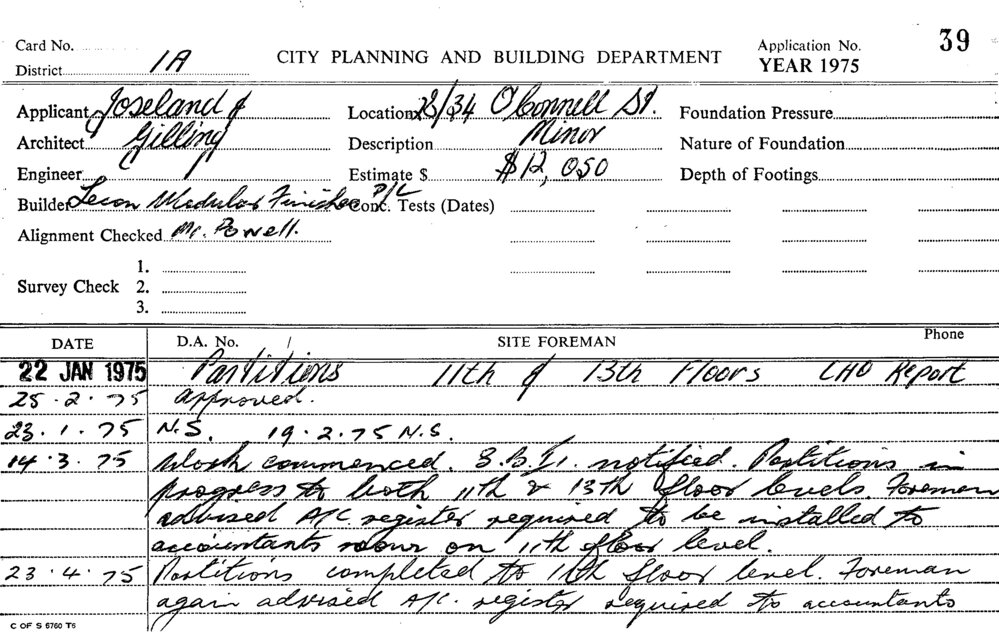 Card No.
District 1A
CITY PLANNING AND BUILDING DEPARTMENT
Application No. 39
YEAR 1975
Applicant Joseland &
Architect Gilling
Engineer
Builder Lecon Modular Finishes P/L
Alignment Checked Mr. Powell.
Survey Check 1.
2.
3.
Location 28/34 O'Connell St.
Description Minor
Estimate $ $12,050
Conc. Tests (Dates)
Foundation Pressure
Nature of Foundation
Depth of Footings
DATE D.A. No. / SITE FOREMAN Phone
22 JAN 1975 Partitions 11th & 13th Floors CHO Report
25.2.75 Approved.
23.1.75 N.S. 19.2.75 N.S.
14.3.75 Work commenced. notified. Partitions in
progress to both 11th & 13th floor levels. Foreman
advised A/C register required to be installed to
accountants room on 11th floor level.
23.4.75 Partitions completed to 11th floor level. Foreman
again advised A/C. register required to accountants
C OF S 5760 T6